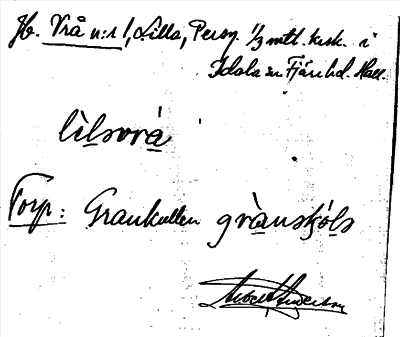 Hb. Vrå n:r 1, Lilla, Persg. 1/3 mtl. krsk. i
Idala sn Fjäre hd. Hall.
lìlsvrá
Torp: Grankullen grànskóls